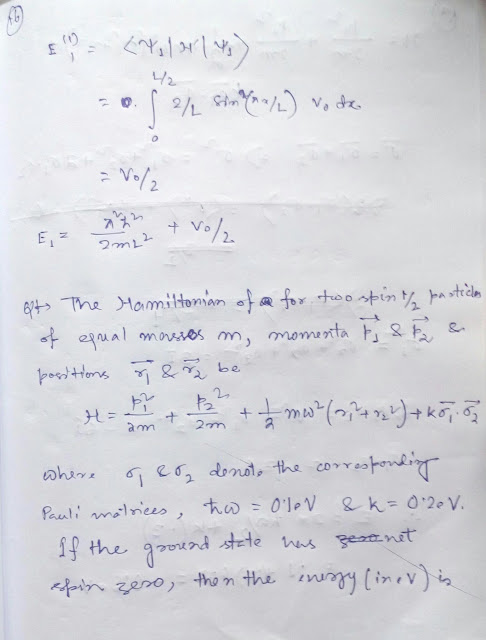 (6)
E₁⁽¹⁾ = <Ψ₁|H|Ψ₁>
= ∫₀^{L/2} 2/L Sin²(πx/L) V₀ dx
= V₀/2
E₁ = π²ħ²/2mL² + V₀/2
Q↦ The Hamiltonian of for two spin 1/2 particles
of equal masses m, momenta p⃗₁ & p⃗₂ &
positions r⃗₁ & r⃗₂ be
H = p₁²/2m + p₂²/2m + 1/2 mω²(r₁²+r₂²) + kσ⃗₁·σ⃗₂
where σ₁ & σ₂ denote the corresponding
Pauli matrices, ħω = 0.1eV & k = 0.2eV.
If the ground state has net
spin zero, then the energy (in eV) is